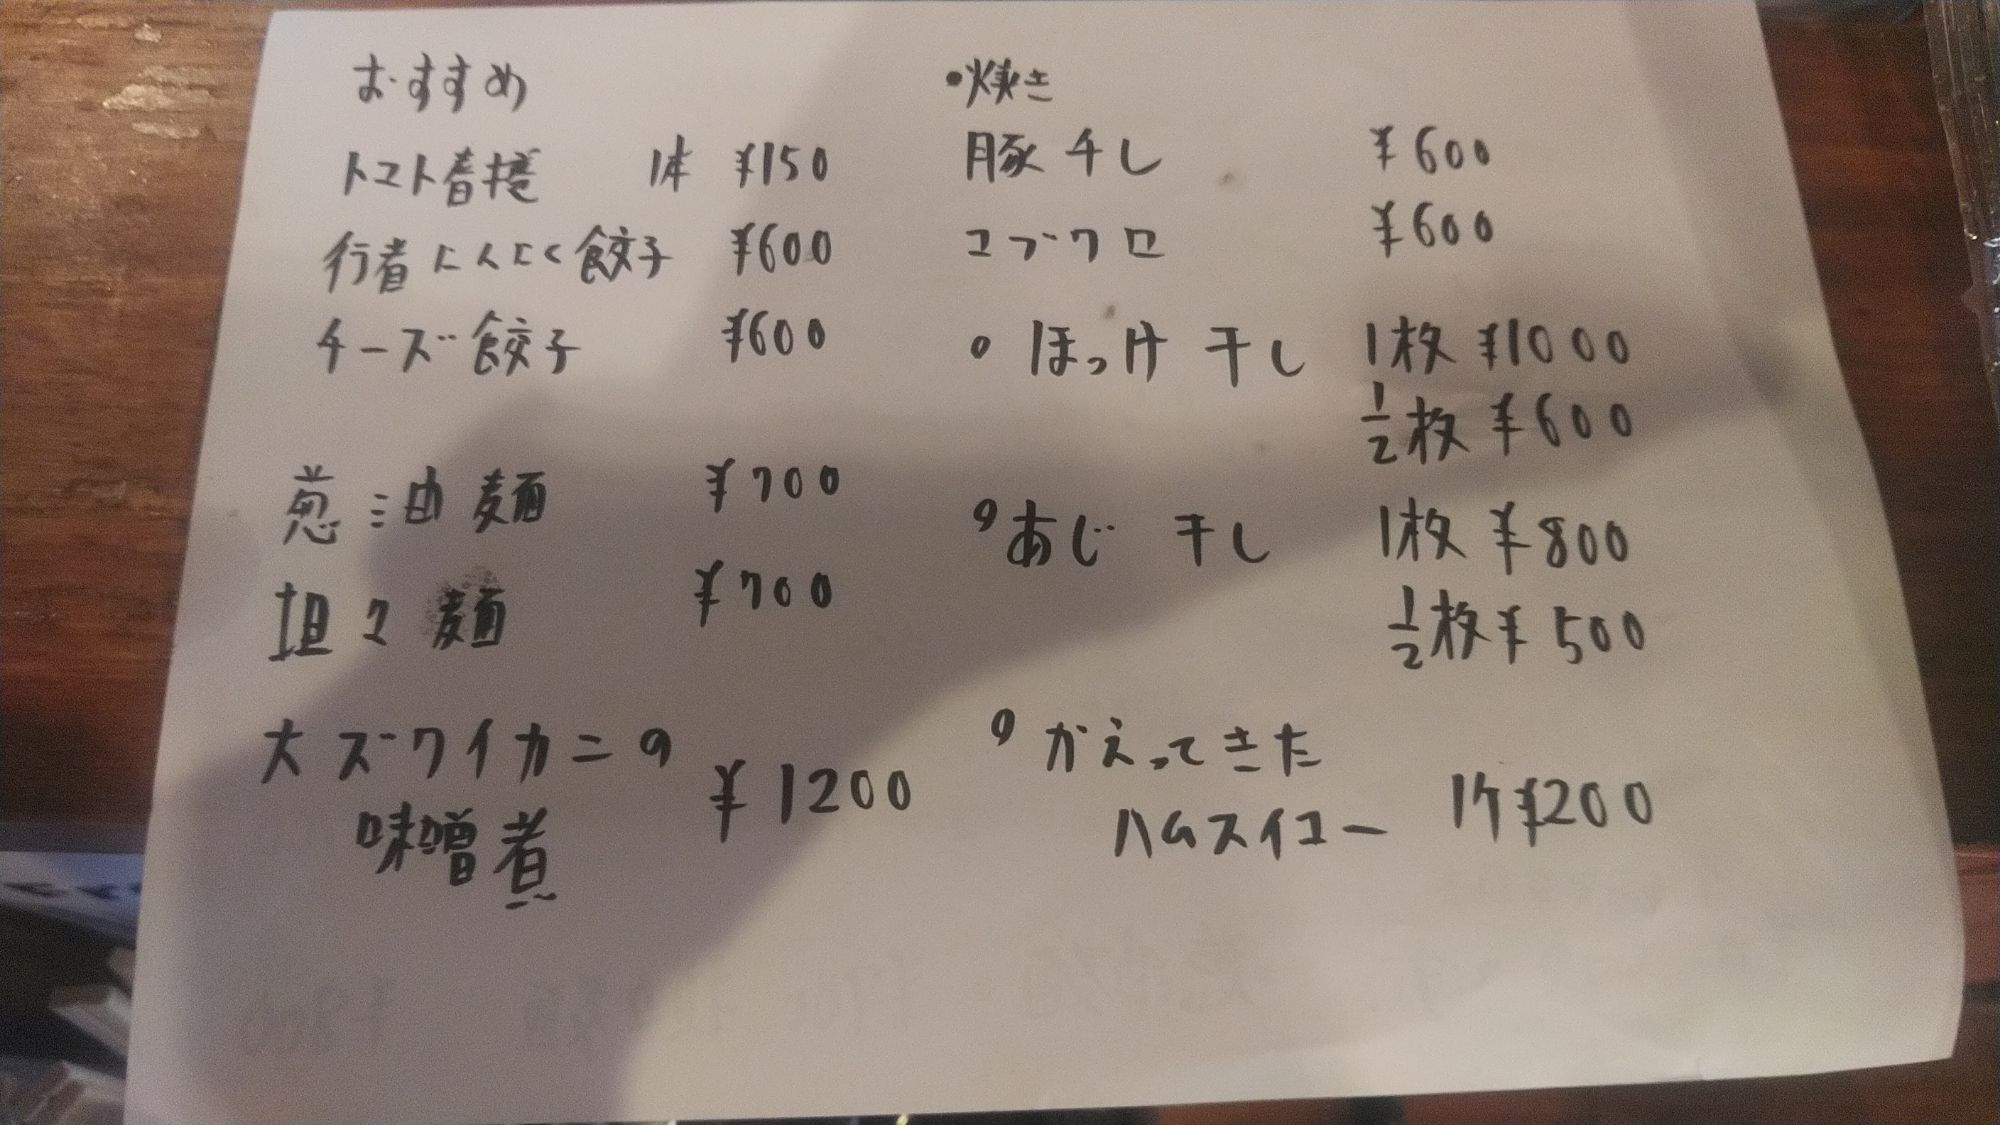 おすすめ
トマト春捲 1本 ¥150
行者にんにく餃子 ¥600
チーズ餃子 ¥600
葱油麺 ¥700
坦々麺 ¥700
大ズワイカニの
味噌煮 ¥1200
•焼き
豚干し ¥600
コブクロ ¥600
•ほっけ干し 1枚 ¥1000
1/2枚 ¥600
•あじ干し 1枚 ¥800
1/2枚 ¥500
•かえってきた
ハムスイコー 1ケ¥200